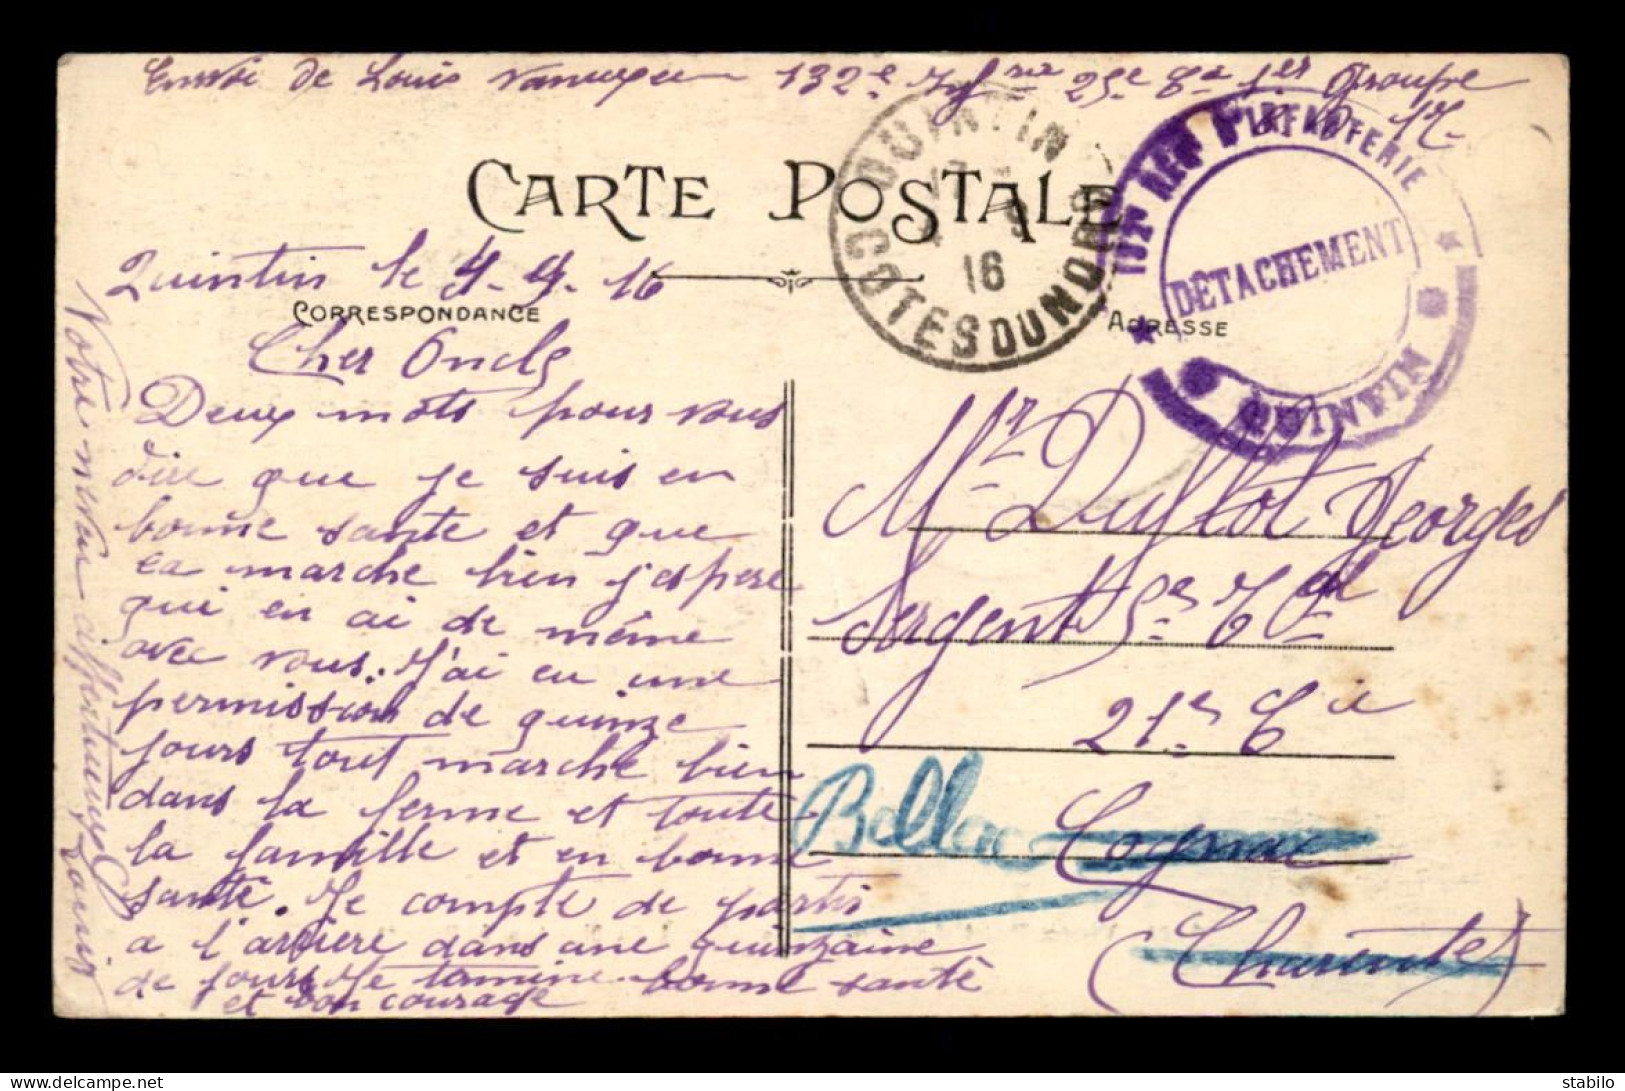 Envoi de Louis 132e 25e Cie 1er Groupe
CARTE POSTALE
QUINTIN
9
16
COTES DU NORD
REGT D'INFANTERIE
DÉTACHEMENT
QUINTIN
CORRESPONDANCE
ADRESSE
Quintin le 4-9-16
Cher Oncle
Deux mots pour vous
dire que je suis en
bonne santé et que
ca marche bien j'espere
qui en ai de même
avec vous. J'ai eu une
permission de quinze
jours tout marche bien
dans la ferme et toute
la famille et en bonne
santé. Je compte de partir
a l'arriere dans une quinzaine
de jours Je termine bonne santé
et bon courage
Votre neveu affectueux Louis
Mr Duflot Georges
Sergent
21e Cie
Bellac Cognac
(Charente)
stabilo
www.delcampe.net